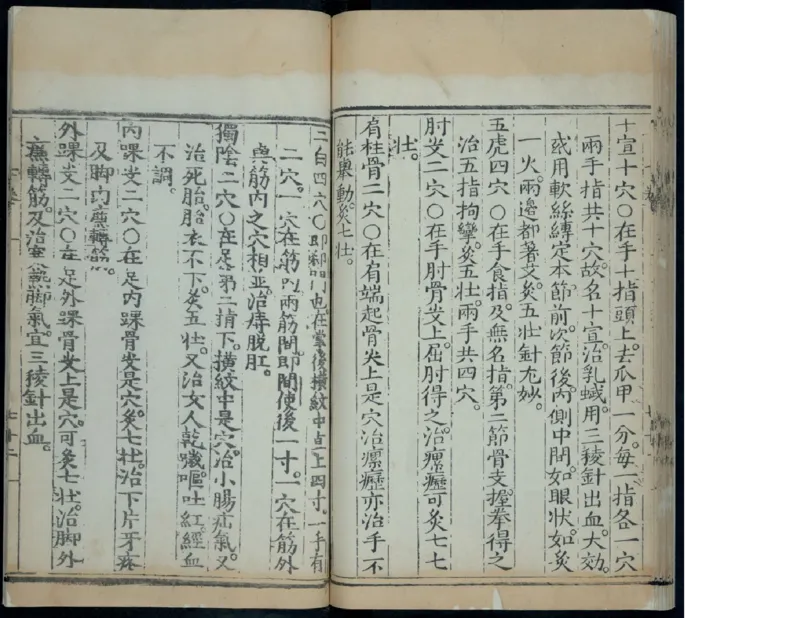 十宣十穴○在手十指頭上。去瓜甲一分。每一指各一穴
兩手指共十穴。故名十宣。治乳蛾。用三稜針出血。大効。
或用軟絲縛定本節前。次節後。內側中間。如眼狀。如灸
一火。兩邊都著艾。灸五壮。針尤妙。
五虎四穴○在手食指。及無名指。第二節骨尖。握拳得之
治五指拘攣。灸五壮。兩手共四穴。
肘尖二穴○在手肘骨尖上。屈肘得之。治瘰癧。可灸七七
壮。
肩柱骨二穴○在肩端起骨尖上是穴。治瘰癧。亦治手不
能舉動。灸七壮。
二白四穴○即郄門也。在掌後橫紋中直上四寸。一手有
二穴。一穴在筋內兩筋間。即間使後一寸。一穴在筋外
與筋內之穴相並。治痔脫肛。
獨陰二穴○在足第二指下。橫紋中是穴。治小腸疝氣。又
治死胎。胎衣不下。灸五壮。又治女人乾噦。嘔吐紅。經血
不調。
內踝尖二穴○在足內踝骨尖是穴。灸七壮。治下片牙疼
及脚內廉轉筋。
外踝尖二穴○在足外踝骨尖上是穴。可灸七壮。治脚外
廉轉筋。及治寒熱脚氣。宜三稜針出血。